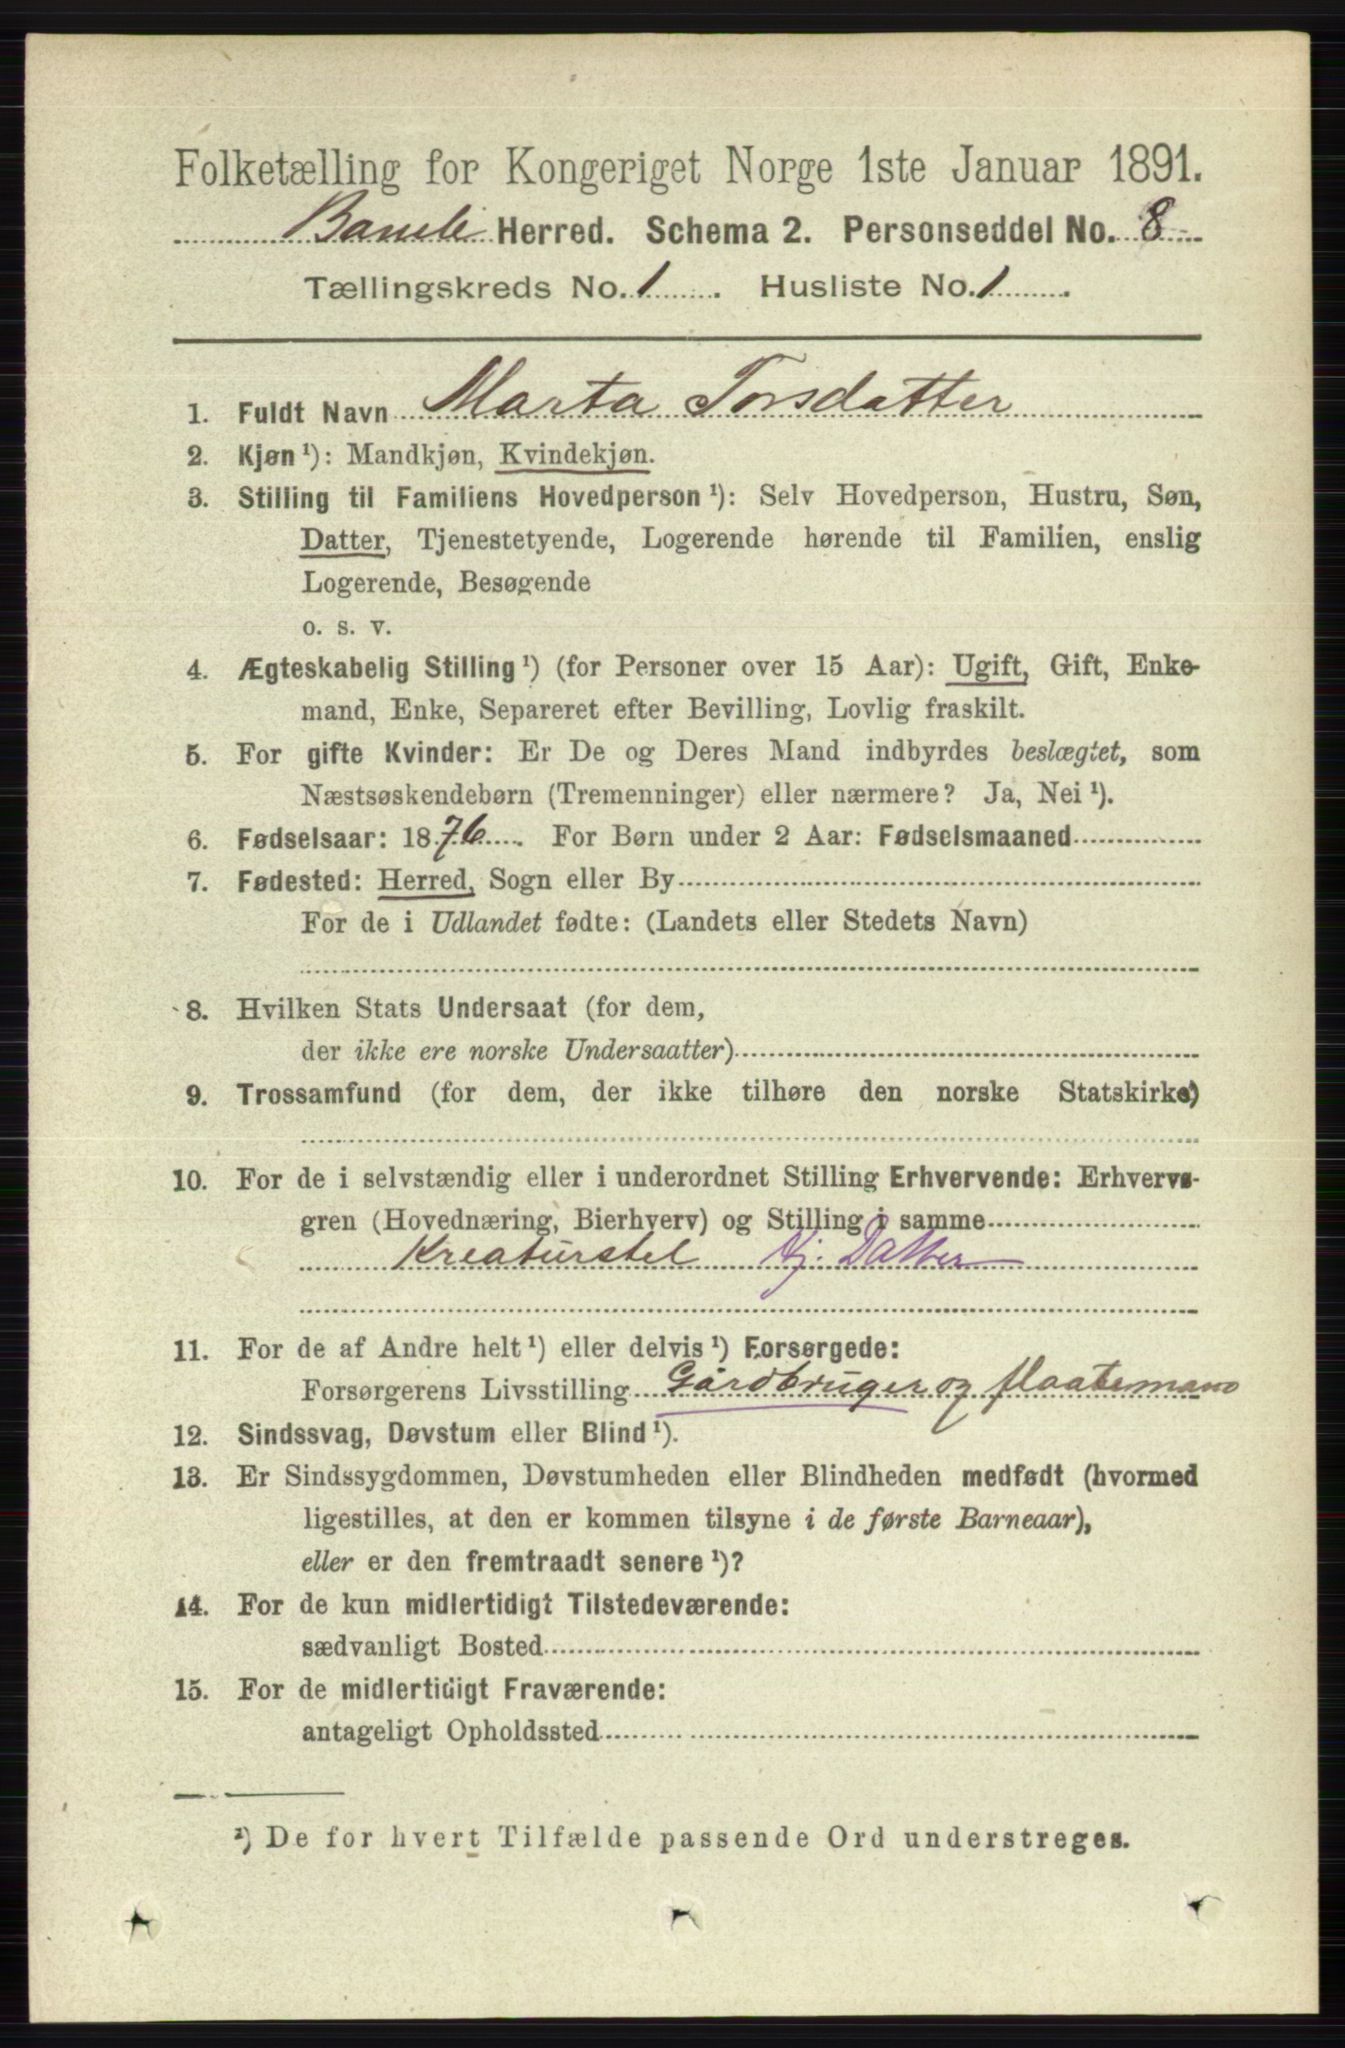 Folketælling for Kongeriget Norge 1ste Januar 1891.
Bamle Herred. Schema 2. Personseddel No. 8
Tællingskreds No. 1. Husliste No. 1.
1. Fuldt Navn Marta Torsdatter
2. Kjøn ¹): Mandkjøn, Kvindekjøn.
3. Stilling til Familiens Hovedperson ¹): Selv Hovedperson, Hustru, Søn,
Datter, Tjenestetyende, Logerende hørende til Familien, enslig
Logerende, Besøgende
o. s. v.
4. Ægteskabelig Stilling ¹) (for Personer over 15 Aar): Ugift, Gift, Enke-
mand, Enke, Separeret efter Bevilling, Lovlig fraskilt.
5. For gifte Kvinder: Er De og Deres Mand indbyrdes beslægtet, som
Næstsøskendebørn (Tremenninger) eller nærmere? Ja, Nei ¹).
6. Fødselsaar: 1876. For Børn under 2 Aar: Fødselsmaaned
7. Fødested: Herred, Sogn eller By
For de i Udlandet fødte: (Landets eller Stedets Navn)
8. Hvilken Stats Undersaat (for dem,
der ikke ere norske Undersaatter)
9. Trossamfund (for dem, der ikke tilhøre den norske Statskirke)
10. For de i selvstændig eller i underordnet Stilling Erhvervende: Erhvervs-
gren (Hovednæring, Bierhverv) og Stilling i samme
Kreaturstel Hj. Datter
11. For de af Andre helt ¹) eller delvis ¹) Forsørgede:
Forsørgerens Livsstilling Gårdbruger og flaatemand
12. Sindssvag, Døvstum eller Blind ¹).
13. Er Sindssygdommen, Døvstumheden eller Blindheden medfødt (hvormed
ligestilles, at den er kommen tilsyne i de første Barneaar),
eller er den fremtraadt senere ¹)?
14. For de kun midlertidigt Tilstedeværende:
sædvanligt Bosted
15. For de midlertidigt Fraværende:
antageligt Opholdssted
¹) De for hvert Tilfælde passende Ord understreges.